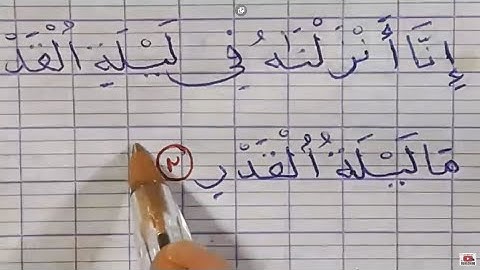 إِنَّا أَنْزَلْنَاهُ فِي لَيْلَةِ الْقَدْ
مَا لَيْلَةُ الْقَدْرِ ٢